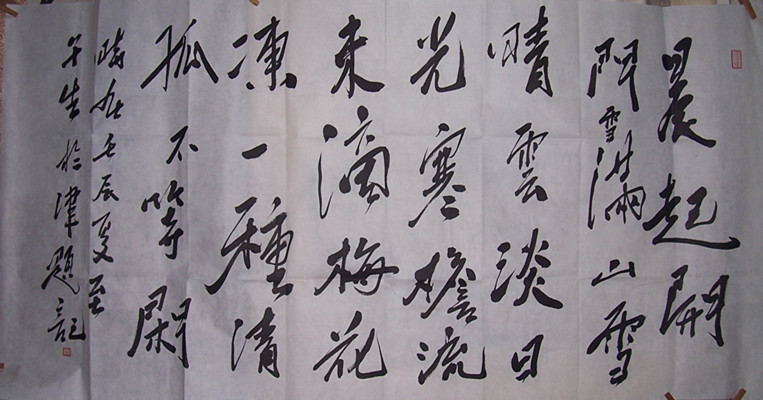 晨起開
門雪滿山雪
晴雲淡日
光寒檐流
未滴梅花
凍一種清
孤不等閑
時在壬辰夏至
午生於津題記